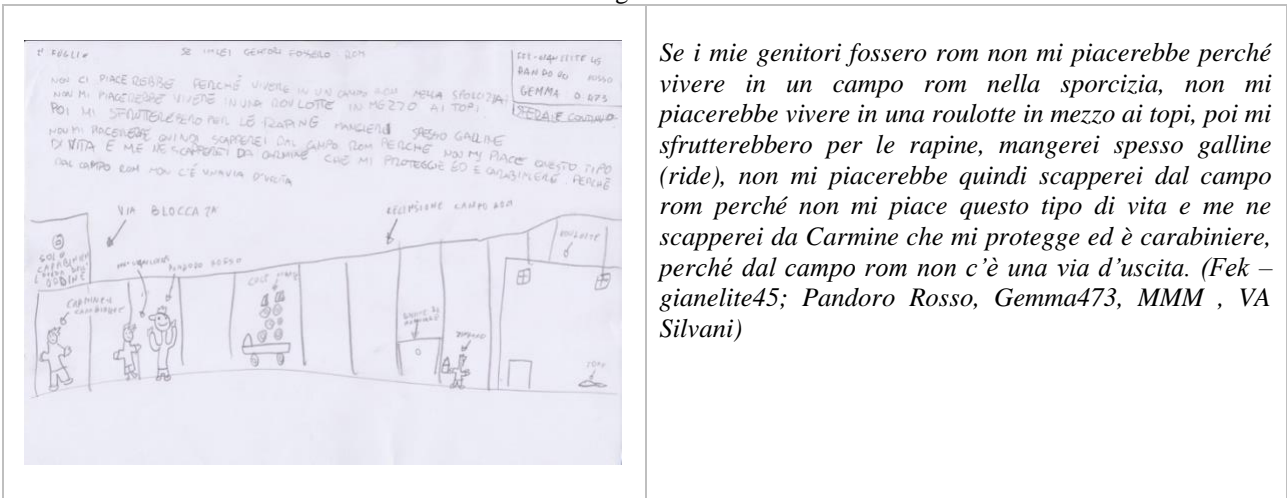 1° FOGLIO
SE I MIEI GENITORI FOSSERO ROM
PANDORO ROSSO
GEMMA
NON CI PIACEREBBE PERCHÉ VIVERE IN UN CAMPO ROM NELLA SPORCIZIA
NON MI PIACEREBBE VIVERE IN UNA ROULOTTE IN MEZZO AI TOPI
POI MI SFRUTTEREBBERO PER LE RAPINE MANGIEREI SPESSO GALLINE
NON MI PIACEREBBE QUINDI SCAPPEREI DAL CAMPO ROM PERCHÉ NON MI PIACE QUESTO TIPO
DI VITA E ME NE SCAPPEREI DA CARMINE CHE MI PROTEGGIE ED È CARABINIERE PERCHÉ
DAL CAMPO ROM NON C'È UNA VIA D'USCITA
VIA BLOCCATA
RECENSIONE CAMPO ROM
ROULOTTE
SOLO
CARABINIERI
PANDORO ROSSO
CARMINE
TOPO
Se i mie genitori fossero rom non mi piacerebbe perché
vivere in un campo rom nella sporcizia, non mi
piacerebbe vivere in una roulotte in mezzo ai topi, poi mi
sfrutterebbero per le rapine, mangerei spesso galline
(ride), non mi piacerebbe quindi scapperei dal campo
rom perché non mi piace questo tipo di vita e me ne
scapperei da Carmine che mi protegge ed è carabiniere,
perché dal campo rom non c'è una via d'uscita. (Fek –
gianelite45; Pandoro Rosso, Gemma473, MMM , VA
Silvani)